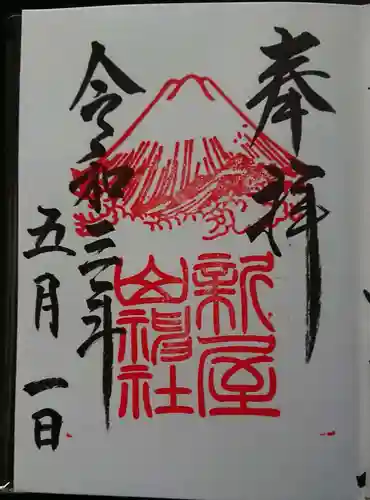 奉拝
新屋
山神社
令和三年
五月一日